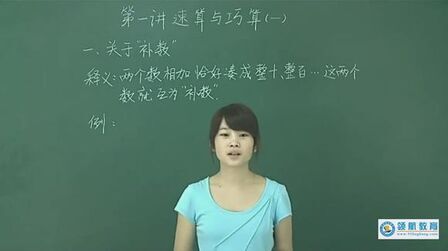 第一讲 速算与巧算(一)
一、关于“补数”
释义:两个数相加恰好凑成整十、整百…这两个
数就互为“补数”.
例:
领航教育